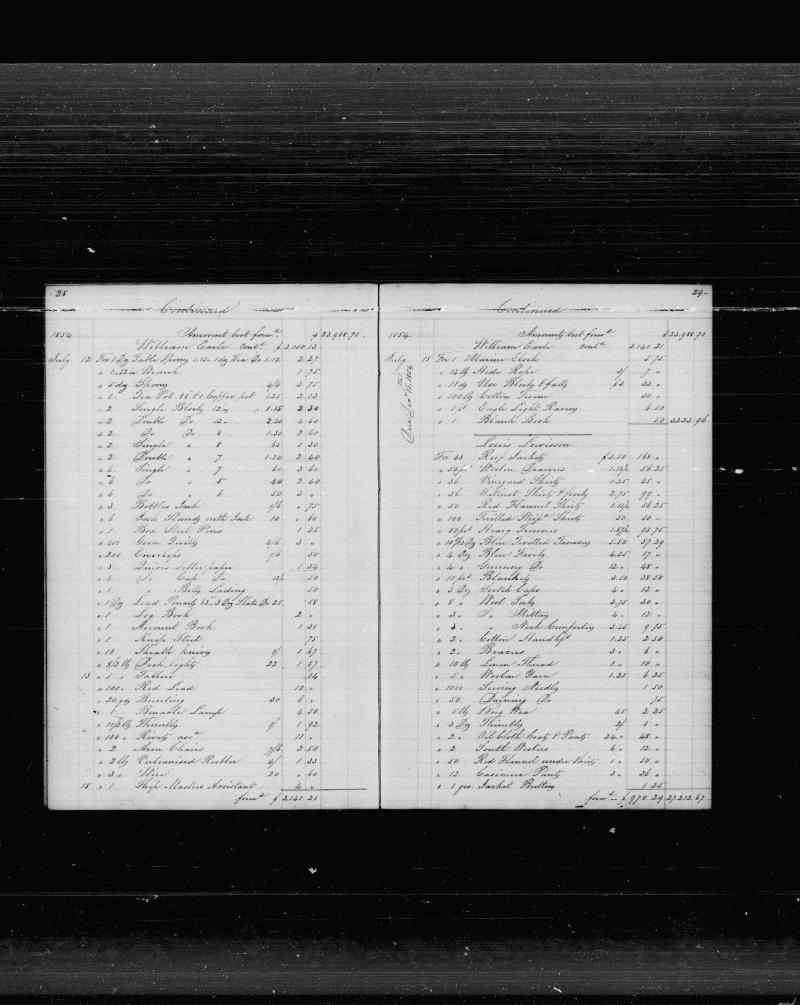 28
Continued
Amount bot forwd $23,988.71
1854 William Earle contd $3,050.13
July 12 For 1 Dz Table Spoons 1.15 - 1 dz Tea Do 1.12 2 27
" 1 Wrench 1 75
" 5 dz Spoons 4/6 3 75
" 1 Tea Pot & 1 Copper pot 1.25 2 13
" 2 Single Blocks 12 in 1.15 2 30
" 2 Double Do 12 " 2.30 4 60
" 2 Do Do 8 1.30 2 60
" 2 Single " 8 65 1 30
" 2 Double " 7 1.20 2 40
" 6 Single " 7 60 3 60
" 6 Do " 5 40 2 40
" 6 Do " 6 50 3 "
" 3 Bottles Ink 1/6 " 75
" 6 Ink Stands with Ink 10 " 60
" 1 Box Steel Pens 1 25
" Goose Quills 4/6 3 "
" 200 Envelops 1/6 30
" 3 Quires letter paper 1 34
" 4 Do Cap Do 50
" 1 " Bills Lading 50
" 1 Dz Lead Pencils 63 - 3 Dz Slate Do 25 88
" 1 Log Book 2 "
" 1 Account Book 1 38
" 1 Knife Steel 75
" 10 Sheath knives 1/ 1 67
" 8 1/2 lb Deck lights 22 1 87
13 " 1 " Tallow 14
" 100 " Red Lead 10 "
" 20 yds Bunting 30 6 "
" 1 Binacle Lamp 4 50
" Thimbles 1/ 1 92
" 100 " Rivets assd 11 "
" 2 Arm Chairs 7/6 2 50
" 2 lb Vulcanised Rubber 4/ 1 33
" 3 " Wire 20 " 60
15 " 1 Ship Masters Assistant 4 "
forwd $3,141 21
29
Continued
Amounts bot forwd $23,988.71
1854 William Earle contd 3,141 21
July 15 For 1 Marine Clock 5 75
" 14 lb Hide Rope 3/ 7 "
" 11 dz Blocks & falls $3 33 "
" 100 lb Cotton Twine 30 "
" 1 pr Eagle Light Ravens 6 50
" 1 Blank Book 50 3223 96
Louis Lewisson
For 48 Reef Jackets $3.50 168 "
" 50 prs Woolen Drawers 1.12½ 56 25
" 36 Vineyard Shirts 1.25 45 "
" 36 Shirts & frocks 2.75 99 "
" 50 Red Flannel Shirts 1.12½ 56 25
" 100 Twilled Stripd Shirts 50 50 "
" 50 prs Heavy Trowsers 1.87½ 93 75
" Blue Twilled Trowsers 5.50 57 29
" 4 Dz Blue Frocks 4.25 17 "
" 4 " Guernsey Do 12 " 48 "
" 11 prs Blankets 3.50 38 50
" 3 Dz Scotch Caps 4 " 12 "
" 8 " Wool Socks 3.75 30 "
" 3 " Do Mittens 4 " 12 "
" 3 " " Neck Comforters 3.25 9 75
" 2 " Cotton Handkfs 1.25 2 50
" 2 " Braces 3 " 6 "
" 10 lb Linen Thread 1 " 10 "
" 5 " Woolen Yarn 1.25 6 25
" 1000 Sewing Needles 1 50
" 50 Darning Do 75
" 5 lb Bees Wax 45 2 25
" 3 Dz Thimbles 2/ 1 "
" 2 " Oil Cloth Coats & Pants 24 " 48 "
" 2 South Westers 6 " 12 "
" 50 Red Flannel under Shirts 1 " 50 "
" 12 Casimere Pants 3 " 36 "
" 1 gro. Jacket Buttons 1 25
forwd $970 29 27,212.67